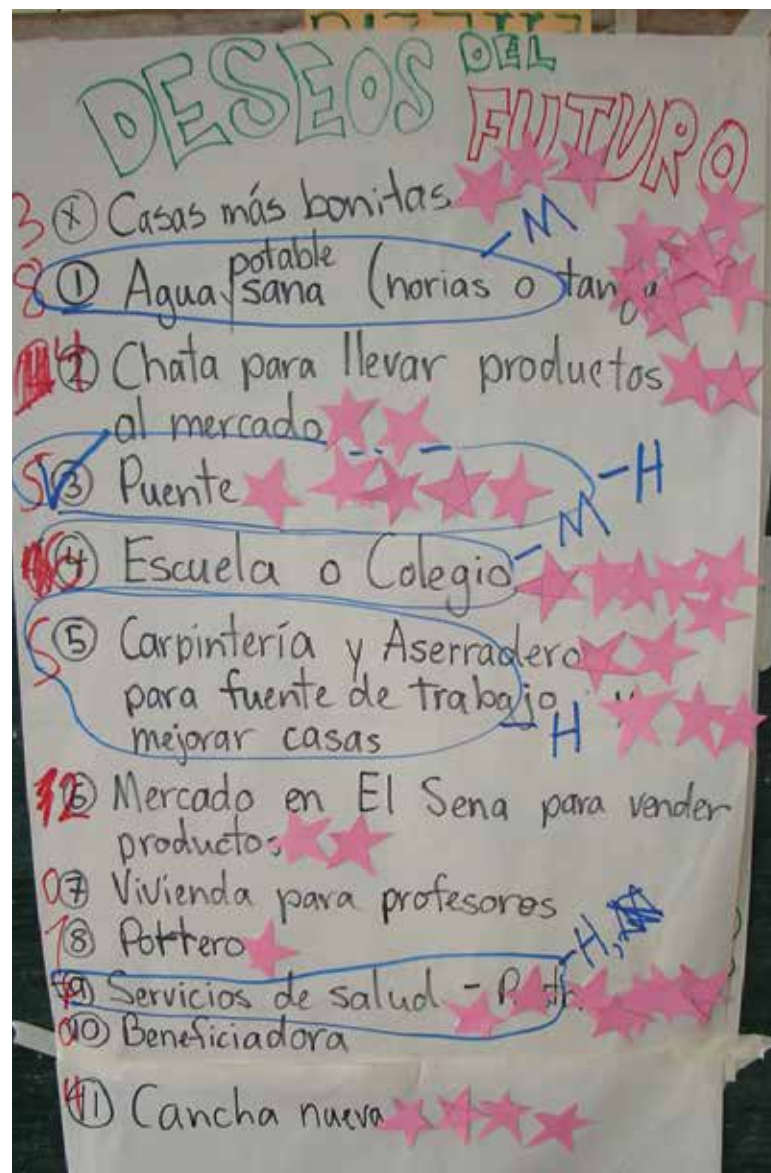 DESEOS DEL FUTURO
3 X Casas más bonitas
M
8 1 Agua potable sana (norias o
4 2 Chata para llevar productos
al mercado
5 3 Puente - H
4 Escuela o Colegio - M
5 5 Carpintería y Aserradero
para fuente de trabajo y
mejorar casas - H
2 6 Mercado en El Sena para vender
productos
0 7 Vivienda para profesores
1 8 Potrero
9 Servicios de salud - H,
0 10 Beneficiadora
4 11 Cancha nueva